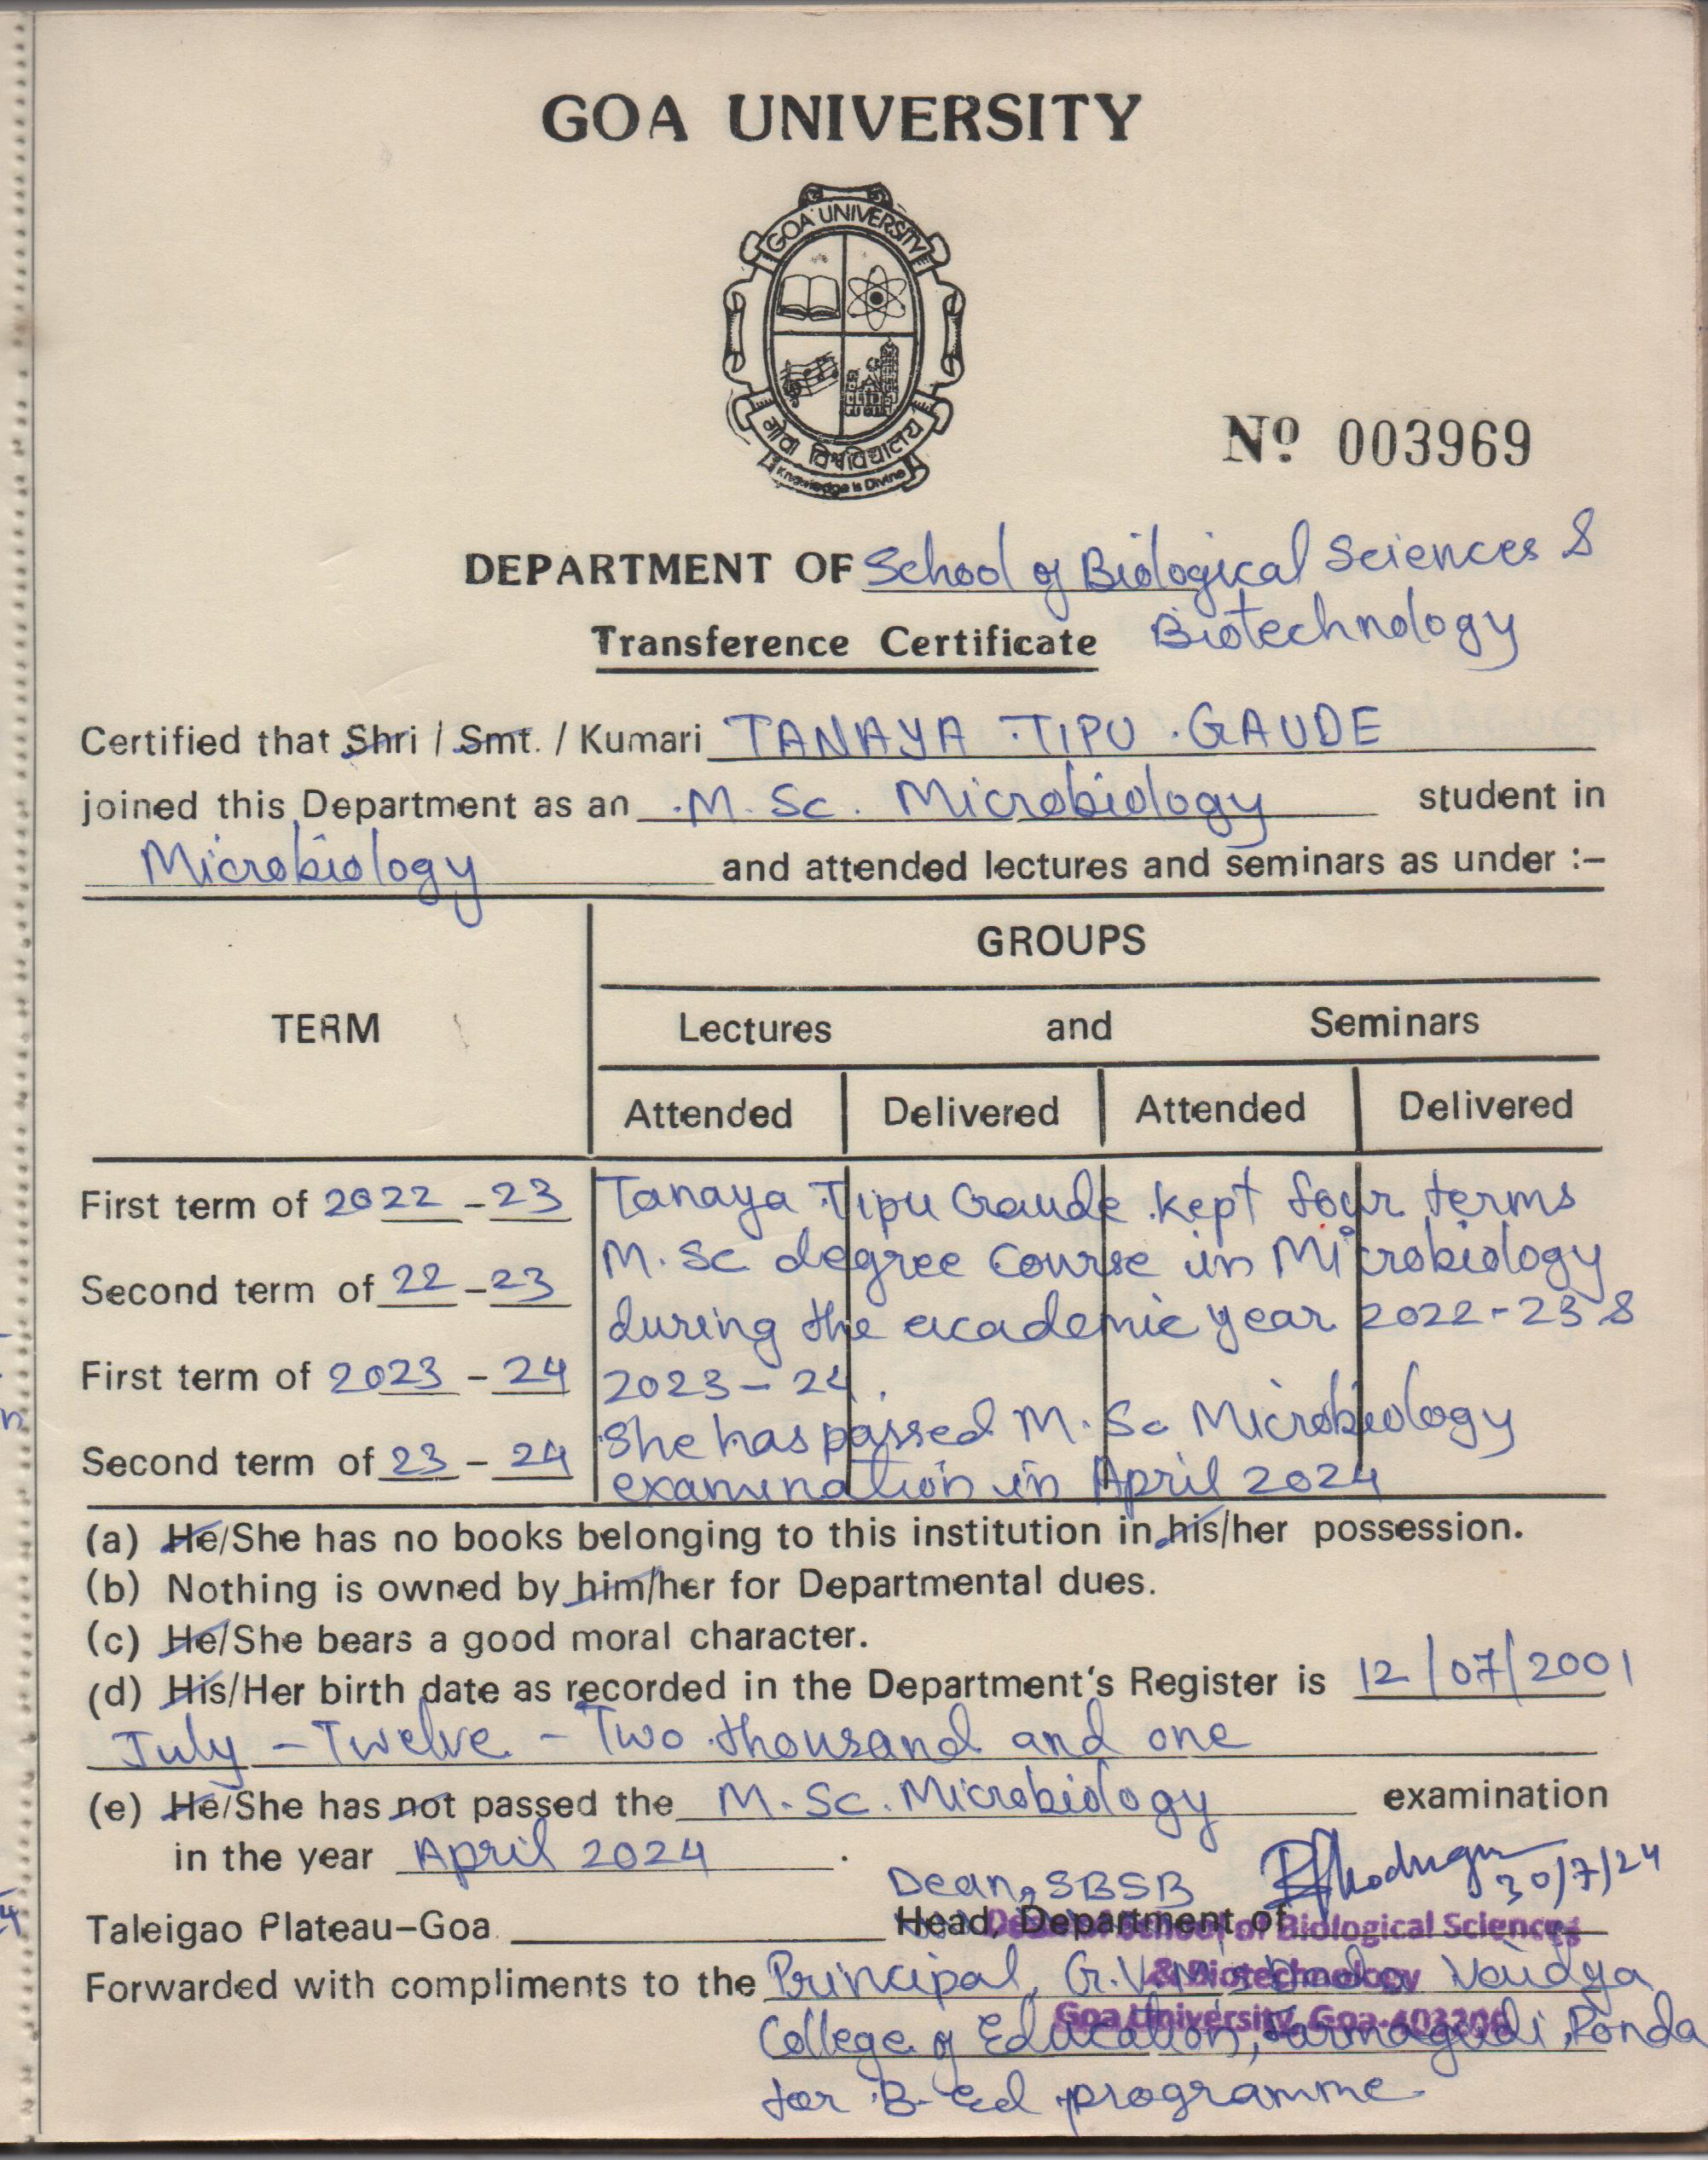 GOA UNIVERSITY
GOA UNIVERSITY
गोवा विश्वविद्यालय
Knowledge is Divine
Nº 003969
DEPARTMENT OF School of Biological Sciences &
Biotechnology
Transference Certificate
Certified that Shri / Smt. / Kumari TANAYA TIPU GAUDE
joined this Department as an M. Sc. Microbiology student in
Microbiology and attended lectures and seminars as under :–
GROUPS
TERM Lectures and Seminars
Attended Delivered Attended Delivered
First term of 2022 - 23 Tanaya Tipu Gaude kept four terms
M. Sc degree course in Microbiology
Second term of 22 - 23
during the academic year 2022-23 &
First term of 2023 - 24 2023-24.
She has passed M. Sc Microbiology
Second term of 23 - 24
examination in April 2024
(a) He/She has no books belonging to this institution in his/her possession.
(b) Nothing is owned by him/her for Departmental dues.
(c) He/She bears a good moral character.
(d) His/Her birth date as recorded in the Department's Register is 12/07/2001
July - Twelve - Two thousand and one
(e) He/She has not passed the M. Sc. Microbiology examination
in the year April 2024.
Dean, SBSB 30/7/24
Taleigao Plateau–Goa Head, Department of
Dean of School of Biological Sciences
& Biotechnology
Goa University, Goa-403206
Forwarded with compliments to the Principal, G.V.M's Dada Vaidya
College of Education, Farmagudi, Ponda
for B. Ed programme